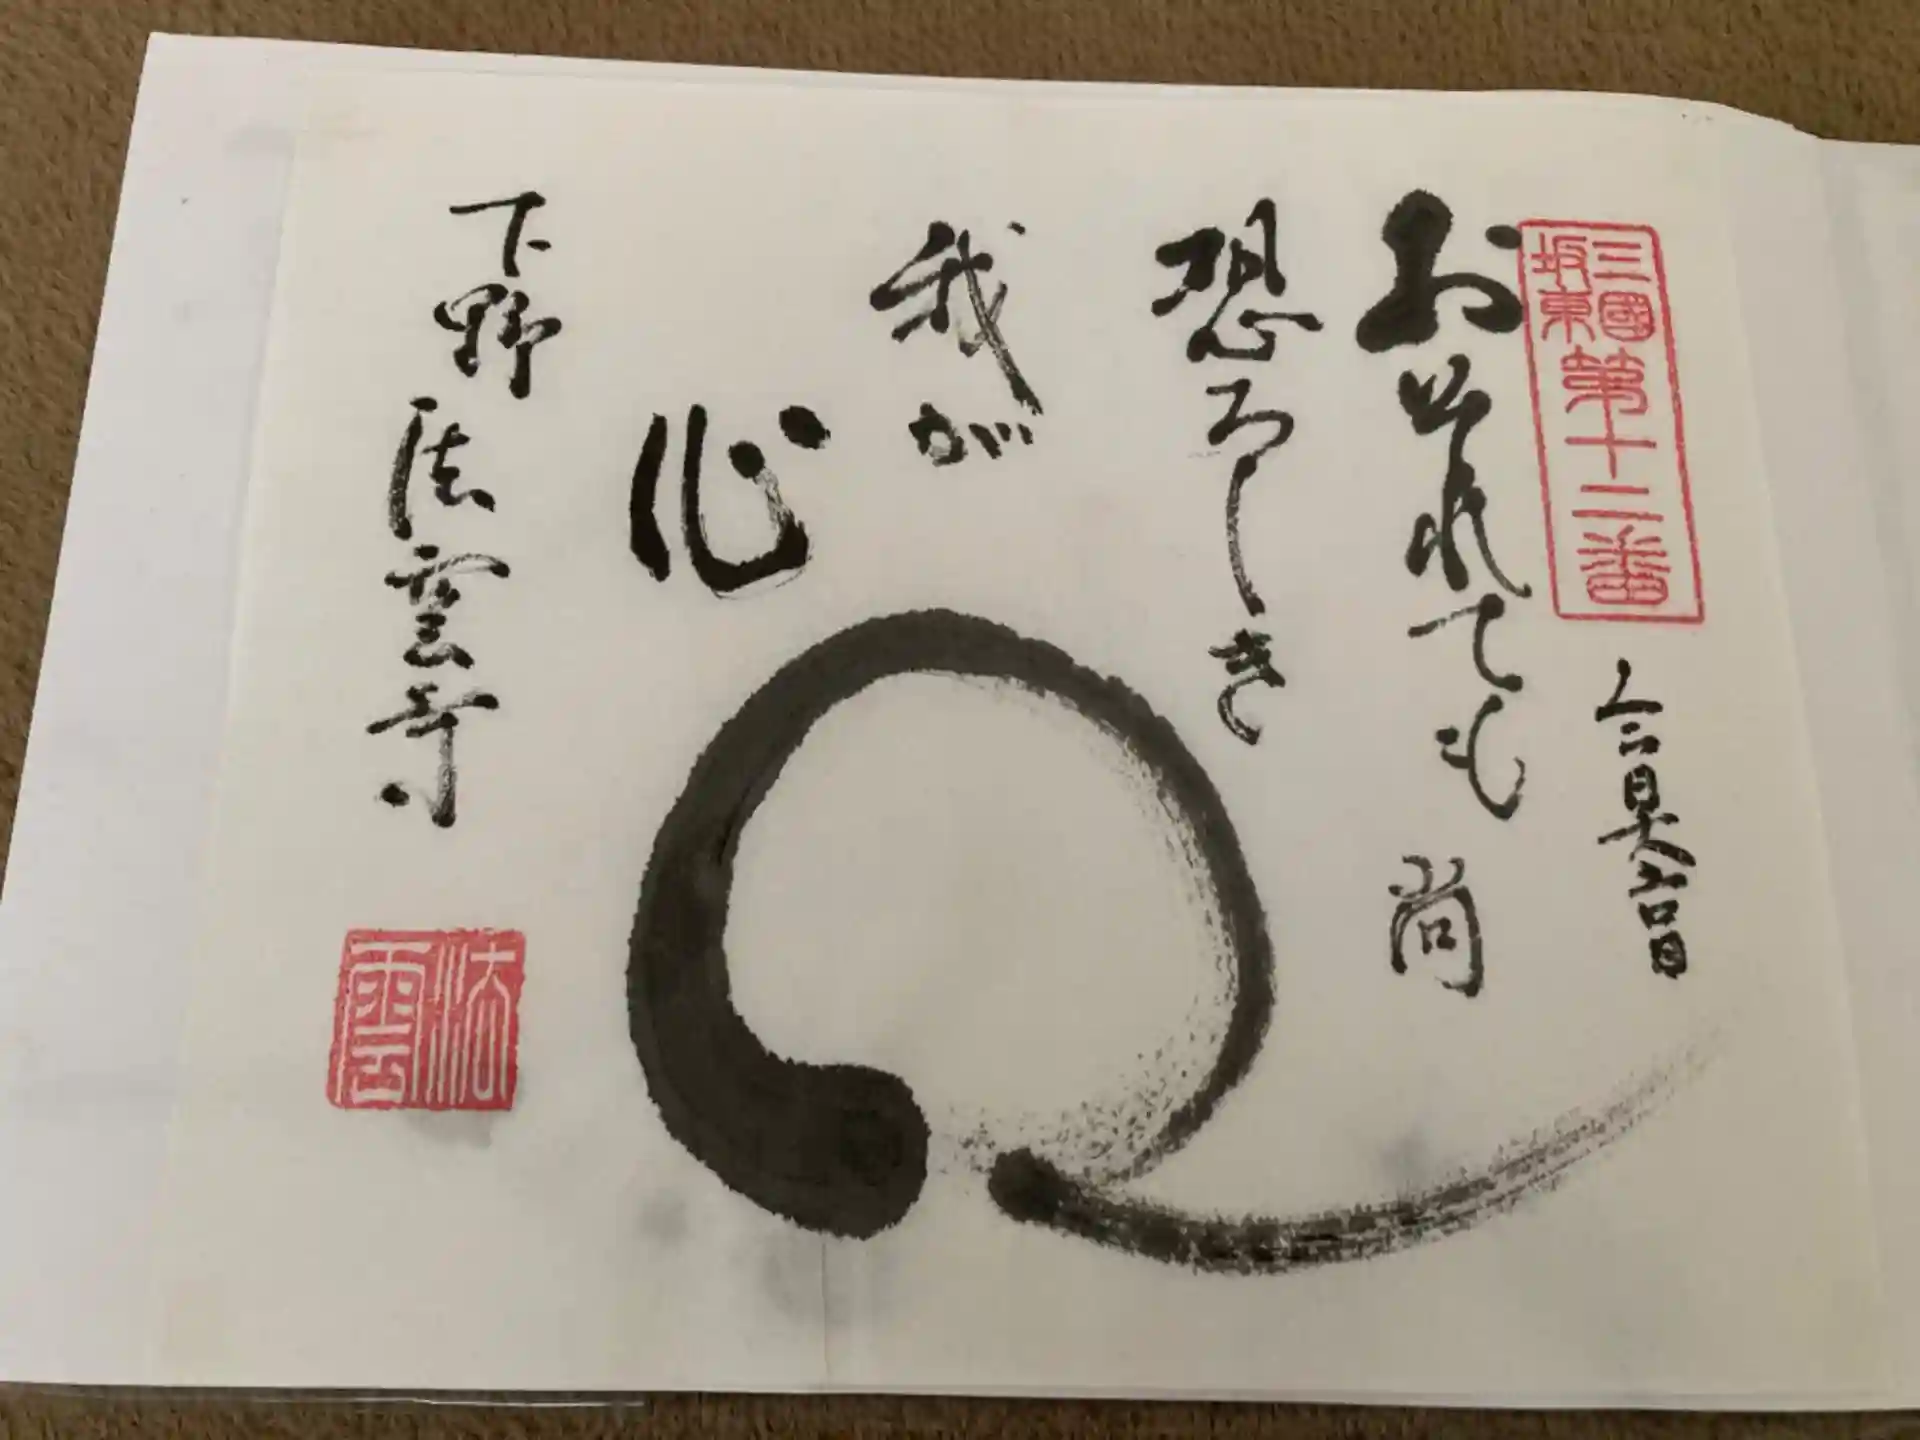 三國
坂東
第十二番
おそれても尚
恐ろしき
我が
心
下野 法雲寺
法雲